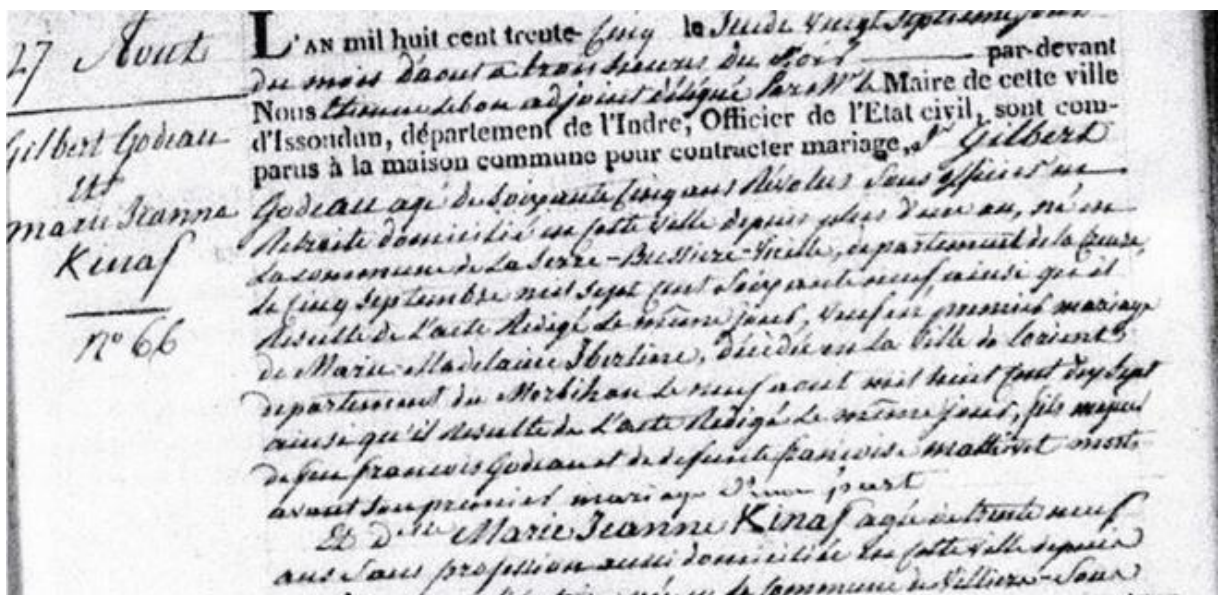 27 Aout
Gilbert Godeau
Et
Marie Jeanne
Kinaf
n° 66
L'AN mil huit cent trente-Cinq le Jeudi vingt Septieme jour
du mois d'aout a trois heures du Soir par-devant
Nous Etienne Lebon adjoint délégué Par Mr le Maire de cette ville
d'Issoudun, département de l'Indre, Officier de l'Etat civil, sont com-
parus à la maison commune pour contracter mariage, Sr Gilbert
Godeau agé de Soixante Cinq ans Révolus Sous officier en
Retraite domicilié en Cette Ville depuis plus d'une an, né en
La commune de La Serre-Bussiere-Vieille, département de la Creuse,
le Cinq Septembre mil Sept Cent Soixante neuf, ainsi qu'il
Resulte de L'acte Redigé Le même jour, veuf en premier mariage
de Marie-Madelaine Ibertine, décédée en La Ville de Lorient
département du Morbihan Le neuf aout mil huit Cent dix Sept
ainsi qu'il Resulte de L'acte Redigé Le même jour, fils majeur
de feu françois Godeau et de defunte françoise morts
avant Son premier mariage d'une part
Et dlle Marie Jeanne Kinaf agée de trente neuf
ans Sans profession aussi domiciliée en Cette Ville depuis
La Commune de Villiers-Sous